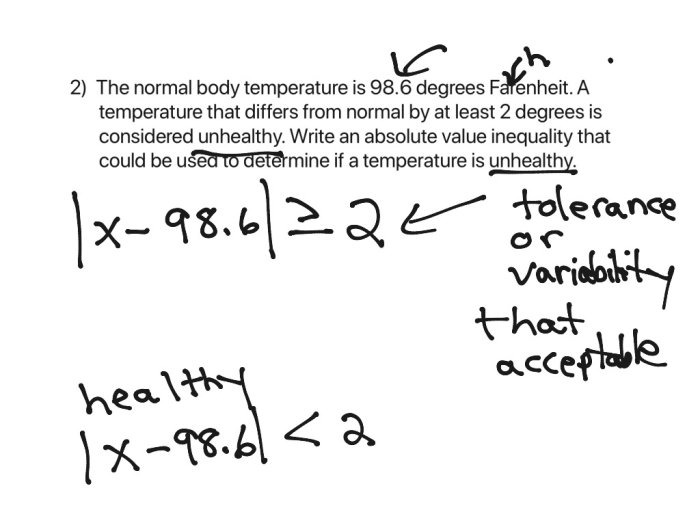 h
2) The normal body temperature is 98.6 degrees Farenheit. A
temperature that differs from normal by at least 2 degrees is
considered unhealthy. Write an absolute value inequality that
could be used to determine if a temperature is unhealthy.
|x-98.6| ≥ 2 ← tolerance
or
variability
that
acceptable
healthy
|x-98.6| < 2